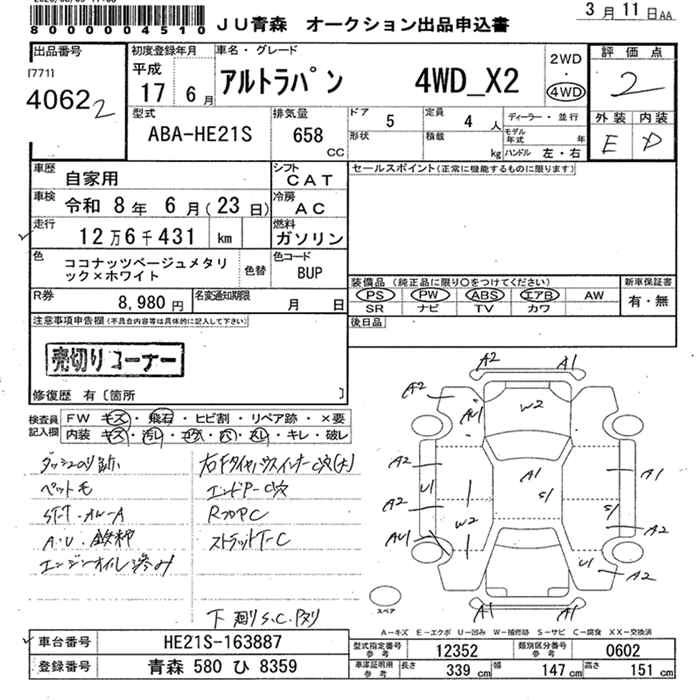 80000004510
JU青森 オークション出品申込書
3月11日AA
出品番号
[771]
4062 2
初度登録年月
平成
17 6月
車名・グレード
アルトラパン 4WD_X2
2WD
・
4WD
評価点
2
外装 内装
E D
型式
ABA-HE21S
排気量
658
CC
ドア
5
定員
4 人
形状
積載
kg
ディーラー・並行
モデル年式 年
ハンドル 左・右
車歴
自家用
車検
令和 8年 6月(23日)
走行
12万6千431 km
シフト
CAT
冷房
AC
燃料
ガソリン
セールスポイント(正常に機能するものに限ります)
色
ココナッツベージュメタリ
ック×ホワイト
色替
色コード
BUP
R券
8,980円
名変通知期限
月 日
装備品(純正品に限り〇をつけてください)
PS PW ABS エアB AW
SR ナビ TV カワ
新車保証書
有・無
後日品
注意事項申告欄(不具合内容等は具体的に記入して下さい)
売切りコーナー
修復歴 有〔箇所 〕
検査員
記入欄
FW キズ・飛石・ヒビ割・リペア跡・×要
内装 キズ・汚レ・コゲ・穴・スレ・キレ・破レ
ペットモ
エンジンオイル滲み
エンドP-C穴
RフロアC
ストラットT-C
下廻りS.C.Pスリ
A2 A1
A2
AU1
W2
A2
A1
A1
U1
S1
A2
W2
AU1
A2
U1
A2
A1 A1
スペア
A-キズ E-エクボ U-凹み W-補修跡 S-サビ C-腐食 XX-交換済
車台番号
HE21S-163887
登録番号
青森 580 ひ 8359
型式指定番号
参考
12352
類別区分番号
参考
0602
車庫証明用
参考
長さ
339 cm
幅
147 cm
高さ
151 cm